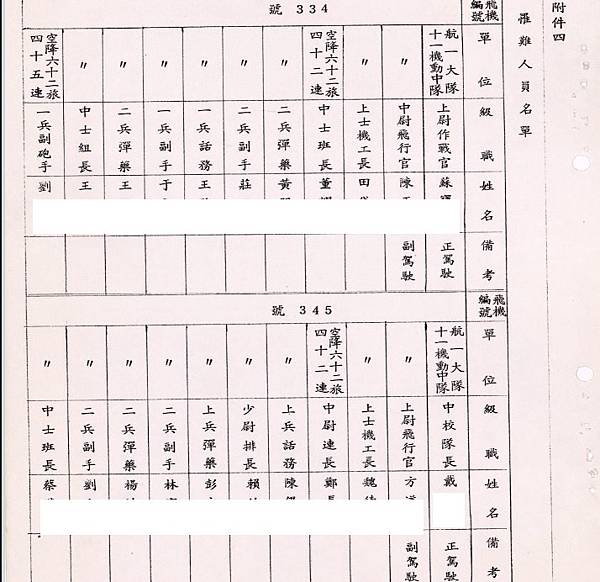 附件四
罹難人員名單
飛機編號 號334
單位 級職 姓名 備考
航一大隊十一機動中隊 上尉作戰官 蘇 正駕駛
〃 中尉飛行官 陳 副駕駛
〃 上士機工長 田
空降六十二旅四十二連 中士班長 董
〃 二兵彈藥 黃
〃 二兵副手 莊
〃 一兵話務 王
〃 一兵副手 于
〃 二兵彈藥 王
〃 中士組長 王
空降六十二旅四十五連 一兵副砲手 劉
飛機編號 號345
單位 級職 姓名 備考
航一大隊十一機動中隊 中校隊長 戴 正駕駛
〃 上尉飛行官 方 副駕駛
〃 上士機工長 魏
空降六十二旅四十二連 中尉連長 鄭
〃 上兵話務 陳
〃 少尉排長 賴
〃 上兵彈藥 彭
〃 二兵副手 林
〃 二兵彈藥 楊
〃 二兵副手 劉
〃 中士班長 蔡